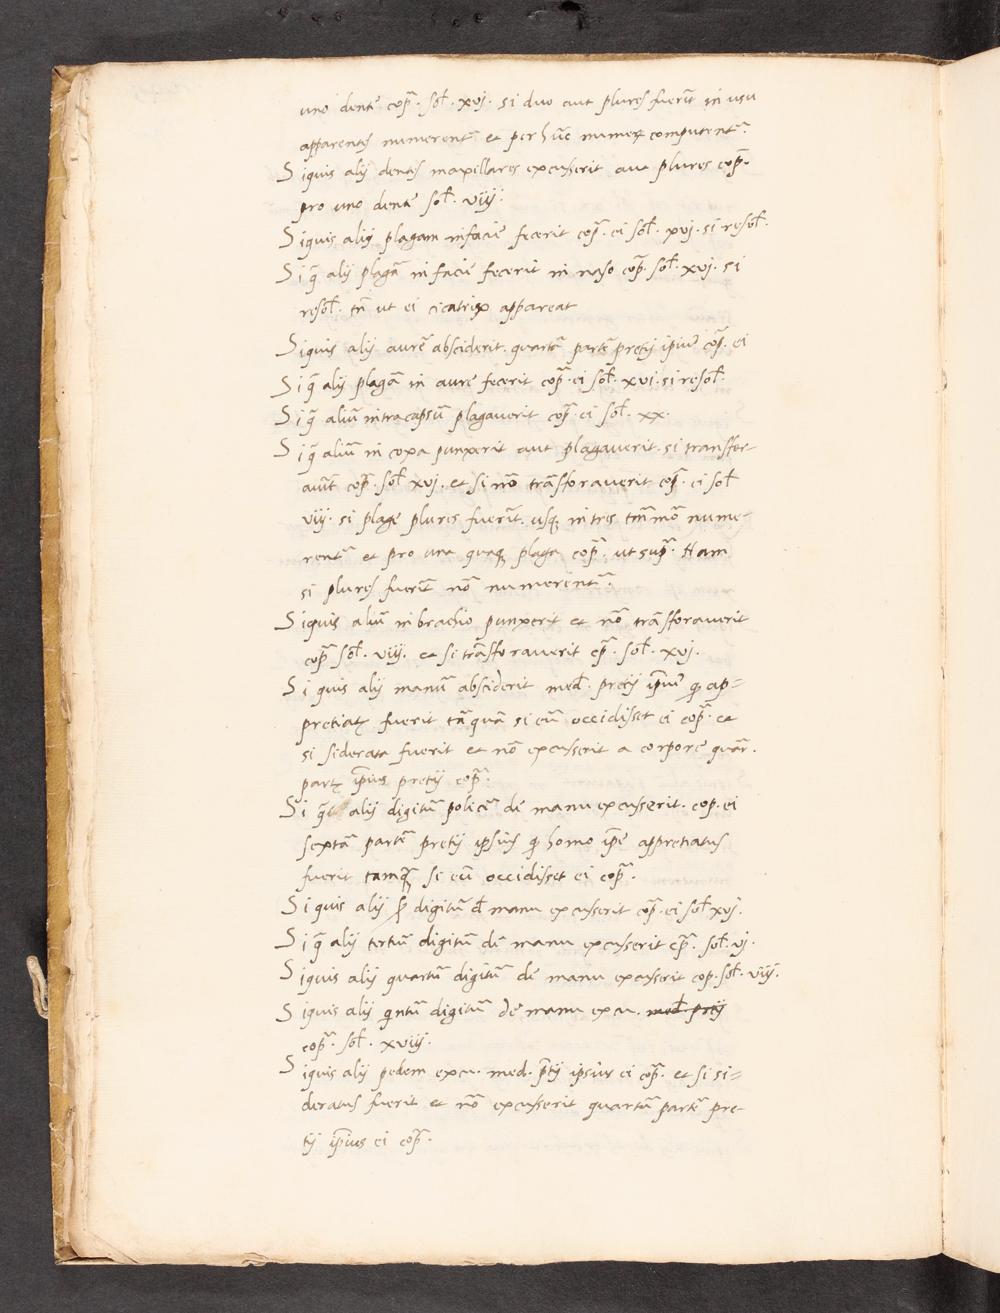 uno dente cop̃. sol. xvj. si duo aut plures fuerĩt in usu
apparentes numerent̃ et per hũc numerꝝ computent̃.
Siquis alij dentes maxillares excusserit aut plures cop̃.
pro uno dente sol. viij.
Siquis alij plagam in facie fecerit cop̃. ei sol. xvj. si resol.
Si q̃ alij plagã in facie fecerit in naso cop̃. sol. xvj. si
resol. tñ ut ei cicatrix appareat
Siquis alij aurẽ absciderit. quartã partẽ pretij ipius cop̃. ei
Si q̃ alij plagã in aure fecerit cop̃. ei sol. xvi. si resol.
Si q̃ aliũ intra capsũ plagaverit cop̃. ei sol. xx.
Si q̃ aliũ in coxa punxerit aut plagaverit. si transfor-
avit̃ cop̃. sol xvj. et si nõ trãsforaverit cop̃. ei sol
viij. si plage plures fuerĩt. usq, in tres tm̃mõ nume-
rent̃ et pro una quaq, plaga cop̃. ut sup̃. Nam
si plures fuerĩt nõ numerent̃.
Siquis aliũ in brachio punxerit et nõ trãsforaverit
cop̃ sol. viij. et si trãsforaverit cp̃. sol. xvj.
Si quis alij manũ absciderit med. pretij ip̃ius q̃ ap=
pretiatꝰ fuerit tã quã si eũ occidisset ei cop̃. et
si siderata fuerit et nõ excusserit a corpore quar.
partẽ ip̃ius pretij cop̃.
Si q̃ alij digitũ policẽ de manu excusserit. cop. ei
sextã partẽ pretij ipsius q̃ homo ip̃e appretiatus
fuerit tamq̃ si eũ occidisset ei cop̃.
Siquis alij s̃ digitũ d̃ manu excusserit cop̃. ei sol xvj.
Si q̃ alij tertiũ digitũ de manu excusserit cp̃. sol. vj.
Siquis alij quartũ digitũ de manu excusserit cop. sol. viij.
Siquis alij q̃ntũ digitũ de manu excu. med. p̃tij
cop̃. sol. xviij.
Siquis alij pedem excu. med. p̃tij ipsius ei cop̃. et si si=
deratus fuerit et nõ excusserit quartã partẽ pre-
tij ip̃ius ei cop̃.